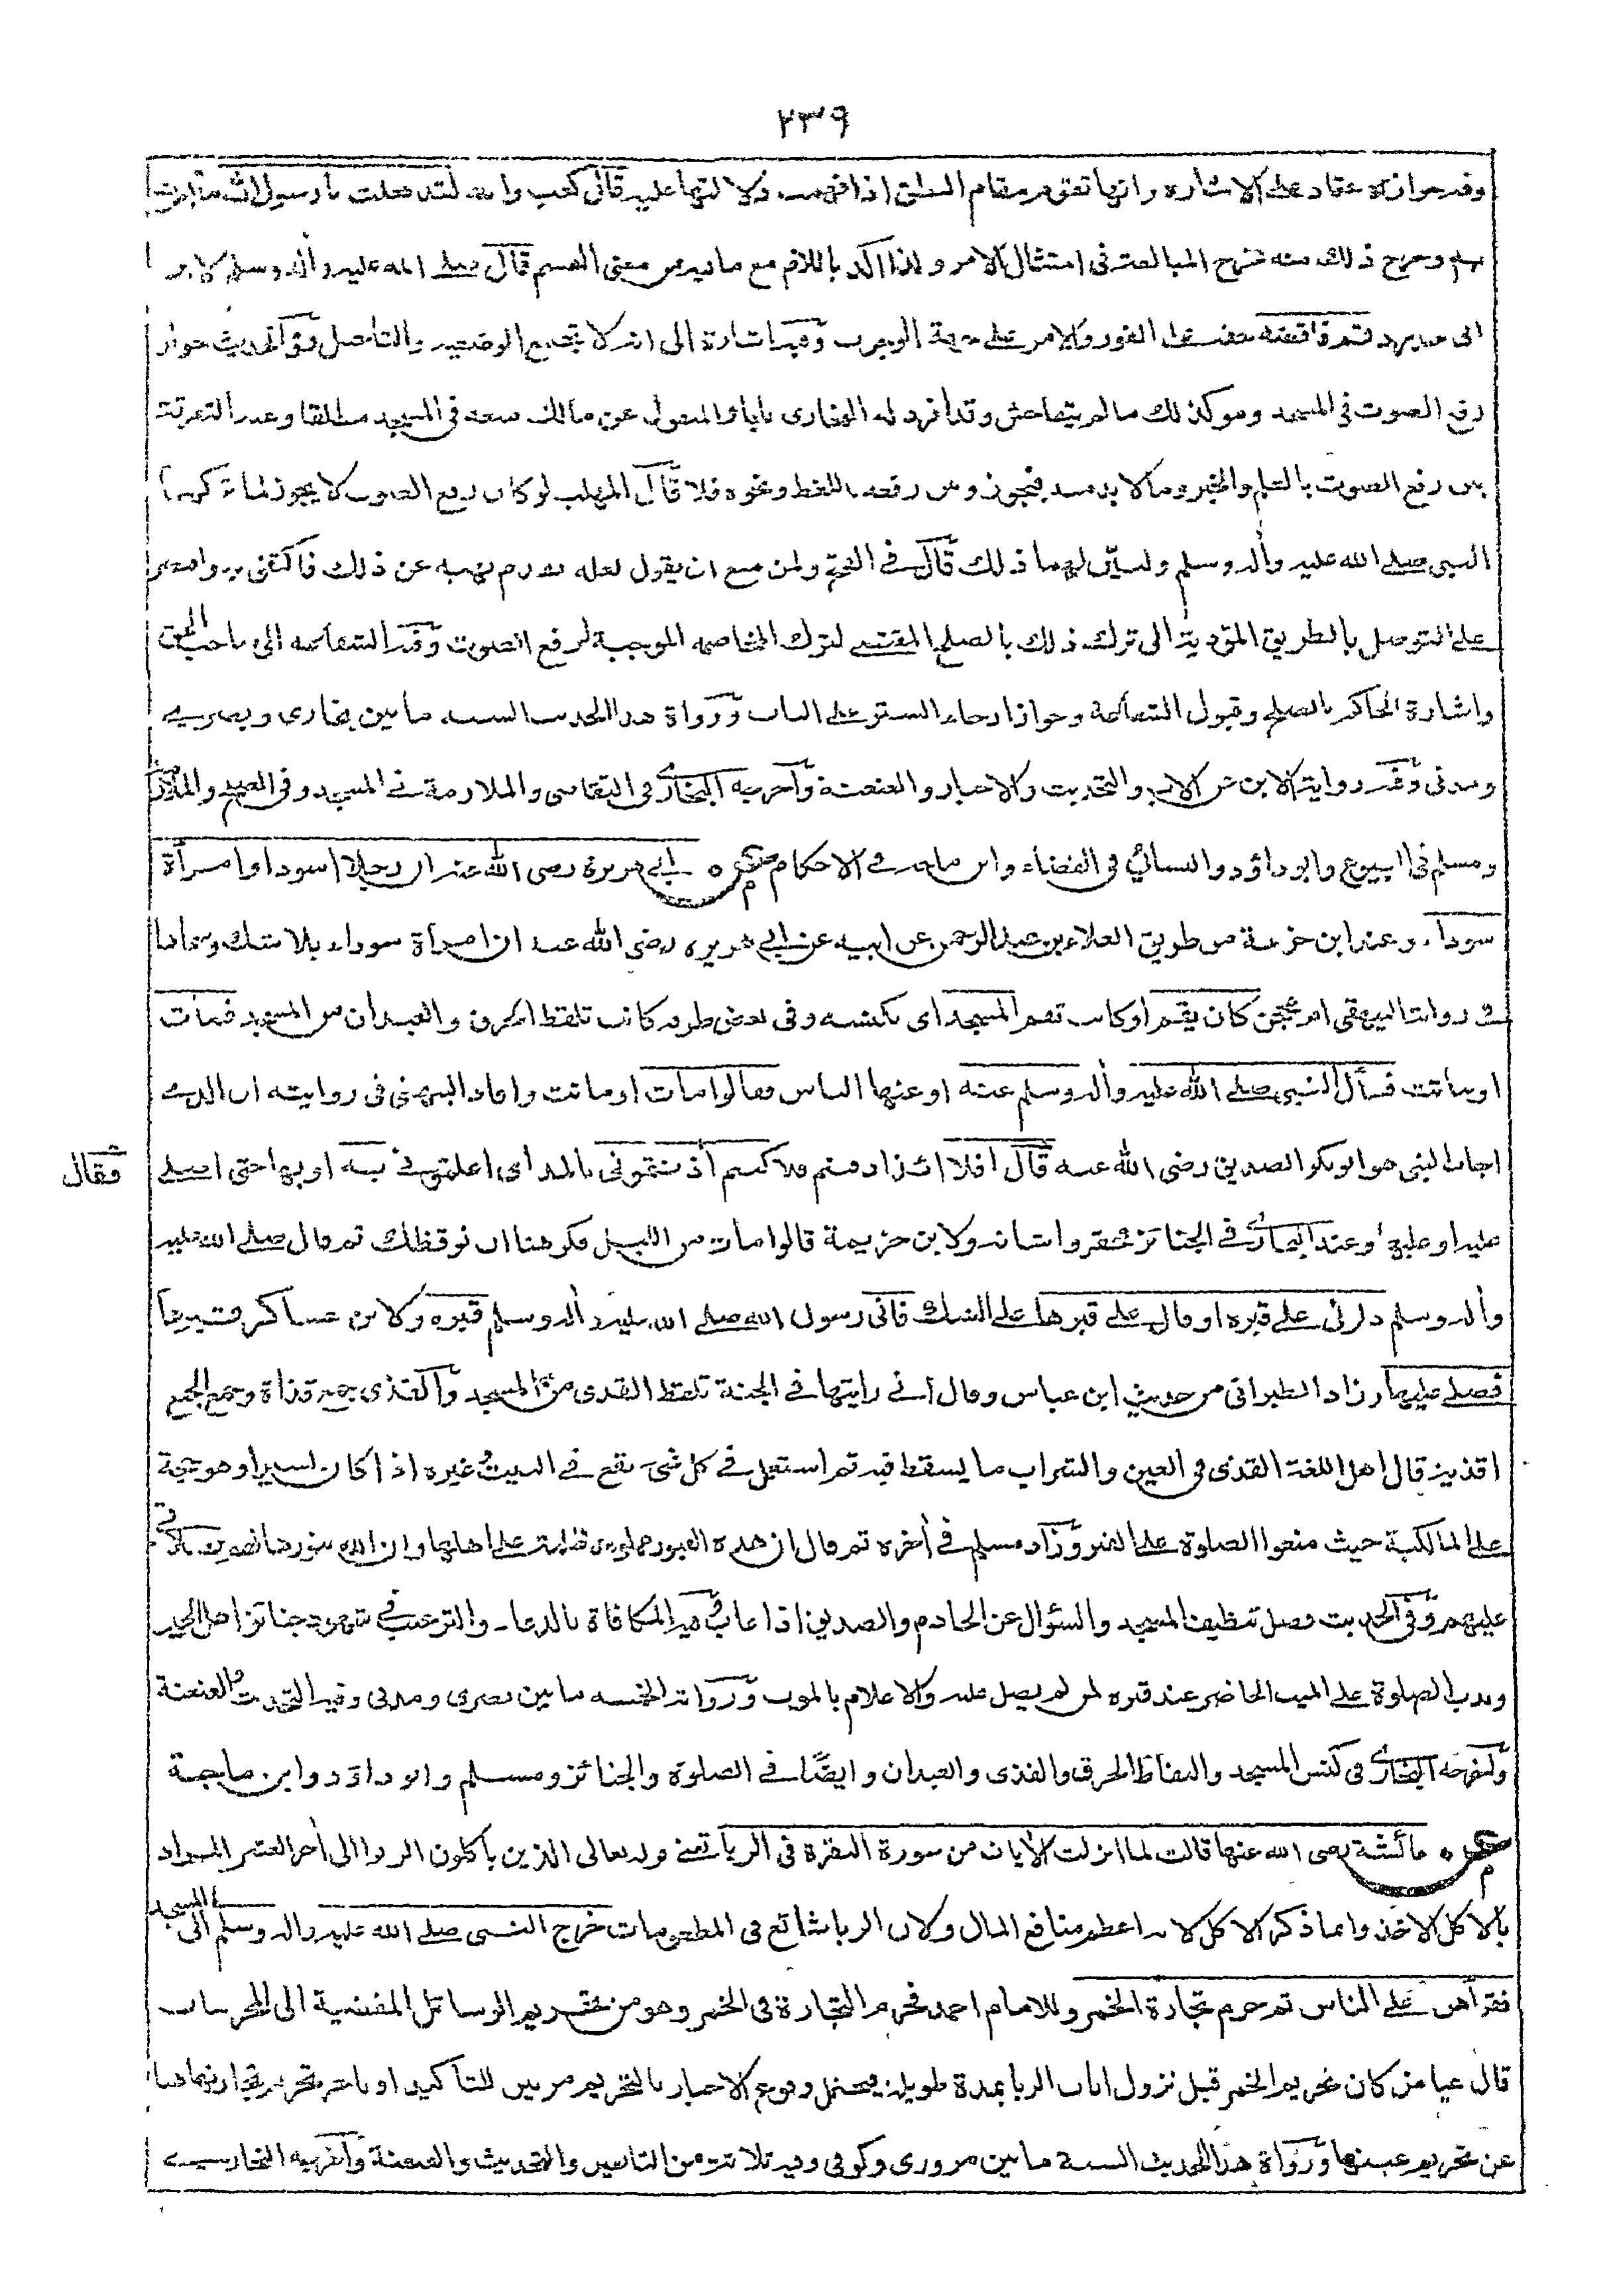 ٢٣٩
وفيه جواز الاعتماد على الاشارة وانها تقوم مقام النطق اذا فهمت دلالتها عليه قال كعب والله لقد فعلت يا رسول الله ما امرت
به وخرج ذلك منه مخرج المبالغة فى امتثال الامر ولذا اكد باللام مع ما فيه من معنى القسم قال صلے الله عليه وآله وسلم لابن
ابى حدرد قم فاقضه حقه على الفور والامر على جهة الوجوب وفيه اشارة الى انه لا يجتمع الوضيعة والتاجيل وفى الحديث جواز
رفع الصوت فى المسجد وهو كذلك ما لم يتفاحش وقد افرد له البخارى بابا والمنقول عن مالك منعه فى المسجد مطلقا وعنه التفرقة
بين رفع الصوت بالعلم والخير وما لا بد منه فيجوز وبين رفعه باللغط ونحوه فلا قال المهلب لو كان رفع الصوت لا يجوز لما تركهما
النبى صلے الله عليه وآله وسلم ولبين لهما ذلك قال فے الفتح ولمن منع ان يقول لعله تقدم نهيه عن ذلك فاكتفى به واقتصر
على التوصل بالطريق المؤدية الى ترك ذلك بالصلح المقتضے لترك المخاصمة الموجبة لرفع الصوت وفيه الشفاعة الى صاحب الحق
واشارة الحاكم بالصلح وقبول الشفاعة وجواز ارخاء الستر على الباب ورواة هذا الحديث الستة ما بين بخارى وبصرے
ومدنى وفيه رواية الابن عن الاب والتحديث والاخبار والعنعنة واخرجه البخارى فى التقاضى والملازمة فے المسجد وفى الصلح والملازمة
ومسلم فى البيوع وابو داؤد والنسائى فى القضاء وابن ماجه فے الاحكام عن ابے هريرة رضى الله عنه ان رجلا اسود او امرأة
سوداء وعند ابن خزيمة من طريق العلاء بن عبد الرحمن عن ابيه عن ابے هريرة رضى الله عنه ان امرأة سوداء بلا شك وسماها
فے رواية البيهقى ام محجن كان يقم او كانت تقم المسجد اى تكنسه وفى بعض طرقه كانت تلتقط الخرق والعيدان من المسجد فمات
او ماتت فسأل النبى صلے الله عليه وآله وسلم عنه او عنها الناس فقالوا مات او ماتت وافاد البيهقى فى روايته ان الذے
اجاب النبى هو ابو بكر الصديق رضى الله عنه قال افلا اى اذا دفنتم فلا كنتم آذنتمونى بالمد اى اعلمتمونے به او بها حتى اصلے
فقال
عليه او عليها وعند البخارى فے الجنائز فحقروا شانه ولابن خزيمة قالوا مات من الليل فكرهنا ان نوقظك ثم قال صلے الله عليه
وآله وسلم دلونى على قبره او قال على قبرها على الشك فاتى رسول الله صلے الله عليه وآله وسلم قبره ولابن عساكر قبرها
فصلے عليها زاد الطبرانى من حديث ابن عباس وقال انے رايتها فے الجنة تلقط القذى من المسجد والقذى جمع قذاة وجمع الجمع
اقذية قال اهل اللغة القذى فى العين والشراب ما يسقط فيه ثم استعمل فے كل شئ يقع فے البيت وغيره اذا كان يسيرا وهو حجة
على المالكية حيث منعوا الصلوة على القبر وزاد مسلم فے آخره ثم قال ان هذه القبور مملوءة ظلمة على اهلها وان الله ينورها لهم بصلاتى
عليهم وفى الحديث فضل تنظيف المسجد والسؤال عن الخادم والصديق اذا غاب وفيه المكافاة بالدعاء والترغيب فے شهود جنائز اهل الخير
وندب الصلوة على الميت الحاضر عند قبره لمن لم يصل عليه والاعلام بالموت ورواته الخمسة ما بين بصرى ومدنى وفيه التحديث والعنعنة
واخرجه البخارى فى كنس المسجد والتقاط الخرق والقذى والعيدان وايضًا فے الصلوة والجنائز ومسلم وابو داؤد وابن ماجة
عن عائشة رضى الله عنها قالت لما انزلت الآيات من سورة البقرة فى الربا تعنے قوله تعالى الذين ياكلون الربوا الى آخر العشر المراد
بالاكل الاخذ وانما ذكر الاكل لانه اعظم منافع المال ولان الربا شائع فى المطعومات خرج النبى صلے الله عليه وآله وسلم الى المسجد
فقرأهن على الناس ثم حرم تجارة الخمر وللامام احمد فحرم التجارة فى الخمر وهو من تحريم الوسائل المفضية الى المحرمات
قال عياض كان تحريم الخمر قبل نزول آيات الربا بمدة طويلة فيحتمل وقوع الاخبار بالتحريم مرتين للتاكيد او تاخر تحريم تجارتها هنا
عن تحريم عينها ورواة هذا الحديث الستة ما بين مروزى وكوفى وفيه ثلاثة من التابعين والتحديث والعنعنة واخرجه البخارے